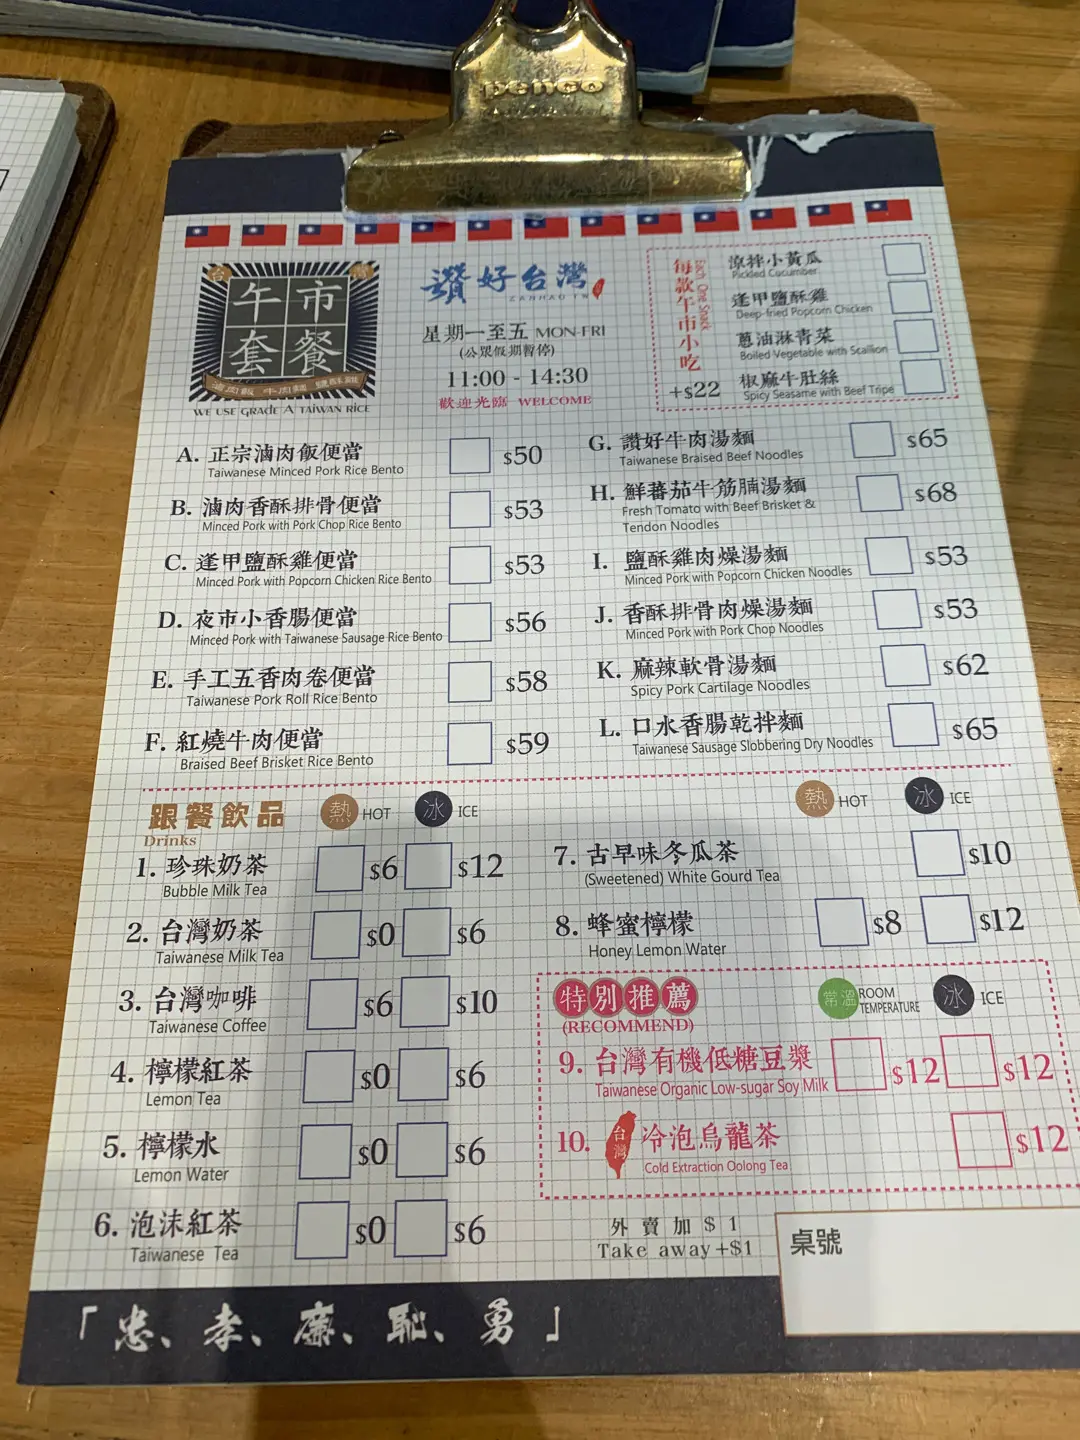 penco
台灣
午市
套餐
滷肉飯 牛肉麵 鹽酥雞
WE USE GRADE A TAIWAN RICE
讚好台灣
ZANHAO TW
星期一至五 MON-FRI
(公眾假期暫停)
11:00 - 14:30
歡迎光臨 WELCOME
每款午市小吃
Each One Snack
+$22
涼拌小黃瓜
Pickled Cucumber
逢甲鹽酥雞
Deep-fried Popcorn Chicken
蔥油淋青菜
Boiled Vegetable with Scallion
椒麻牛肚絲
Spicy Seasame with Beef Tripe
A. 正宗滷肉飯便當 $50
Taiwanese Minced Pork Rice Bento
B. 滷肉香酥排骨便當 $53
Minced Pork with Pork Chop Rice Bento
C. 逢甲鹽酥雞便當 $53
Minced Pork with Popcorn Chicken Rice Bento
D. 夜市小香腸便當 $56
Minced Pork with Taiwanese Sausage Rice Bento
E. 手工五香肉卷便當 $58
Taiwanese Pork Roll Rice Bento
F. 紅燒牛肉便當 $59
Braised Beef Brisket Rice Bento
G. 讚好牛肉湯麵 $65
Taiwanese Braised Beef Noodles
H. 鮮蕃茄牛筋腩湯麵 $68
Fresh Tomato with Beef Brisket &
Tendon Noodles
I. 鹽酥雞肉燥湯麵 $53
Minced Pork with Popcorn Chicken Noodles
J. 香酥排骨肉燥湯麵 $53
Minced Pork with Pork Chop Noodles
K. 麻辣軟骨湯麵 $62
Spicy Pork Cartilage Noodles
L. 口水香腸乾拌麵 $65
Taiwanese Sausage Slobbering Dry Noodles
跟餐飲品 熱 HOT 冰 ICE
Drinks
1. 珍珠奶茶 $6 $12
Bubble Milk Tea
2. 台灣奶茶 $0 $6
Taiwanese Milk Tea
3. 台灣咖啡 $6 $10
Taiwanese Coffee
4. 檸檬紅茶 $0 $6
Lemon Tea
5. 檸檬水 $0 $6
Lemon Water
6. 泡沫紅茶 $0 $6
Taiwanese Tea
熱 HOT 冰 ICE
7. 古早味冬瓜茶 $10
(Sweetened) White Gourd Tea
8. 蜂蜜檸檬 $8 $12
Honey Lemon Water
特別推薦 常溫 ROOM TEMPERATURE 冰 ICE
(RECOMMEND)
9. 台灣有機低糖豆漿 $12 $12
Taiwanese Organic Low-sugar Soy Milk
10. 台灣 冷泡烏龍茶 $12
Cold Extraction Oolong Tea
外賣加 $ 1
Take away +$1
桌號
「忠、孝、廉、恥、勇」